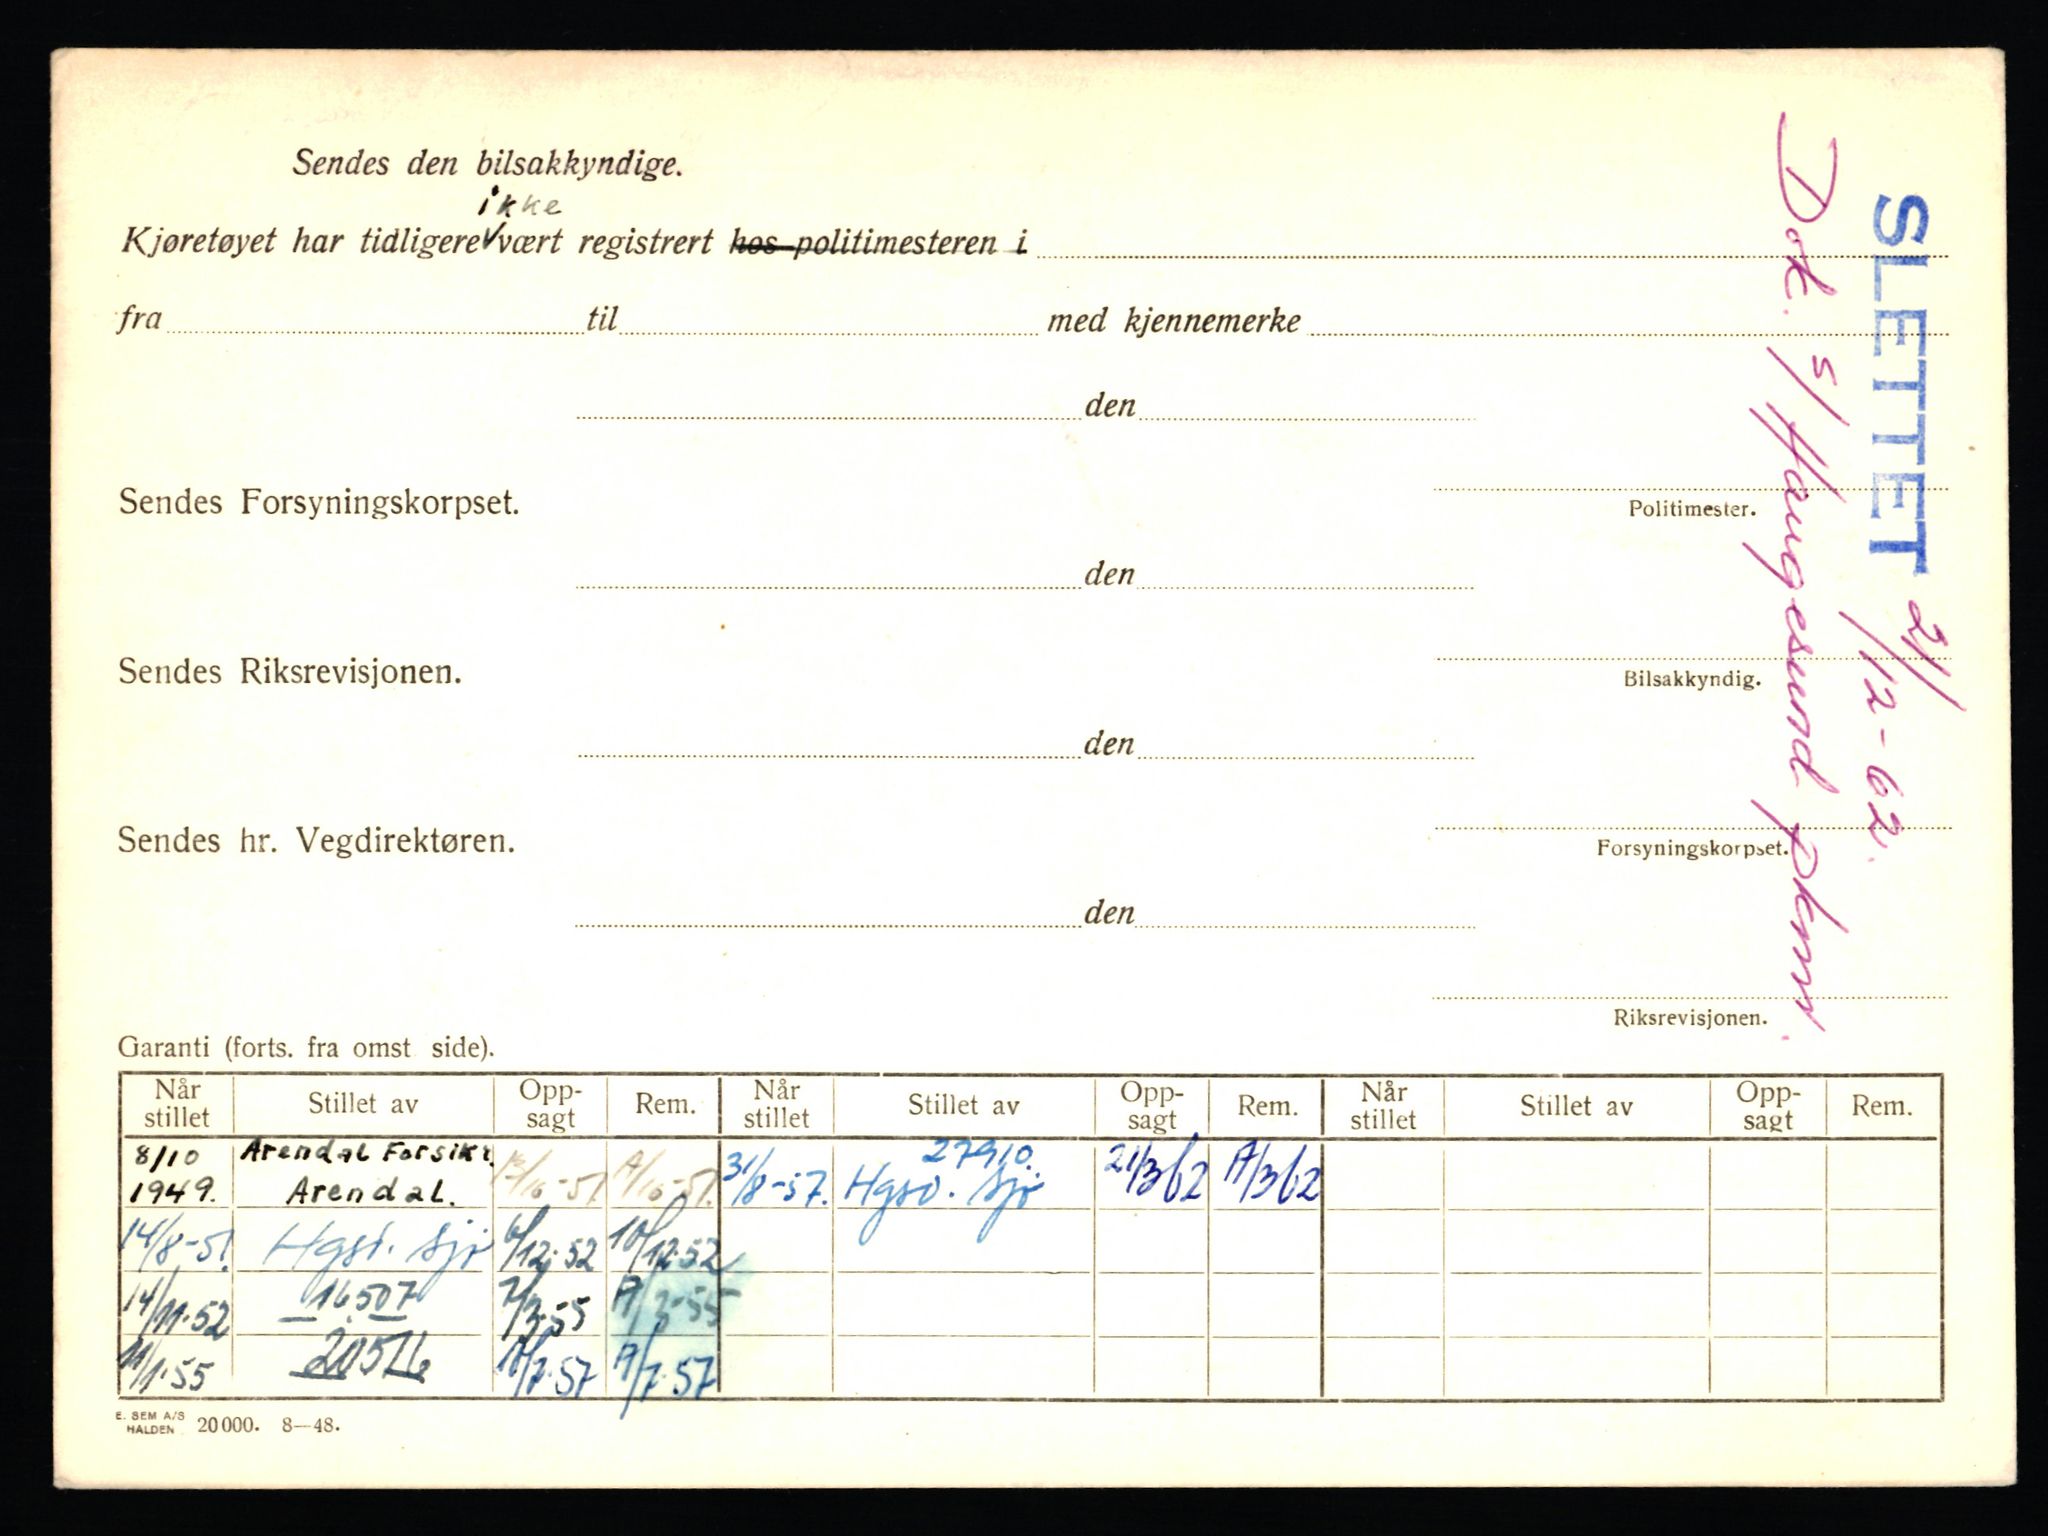 Sendes den bilsakkyndige.
ikke
Kjøretøyet har tidligere vært registrert hos politimesteren i
fra til med kjennemerke
den
Sendes Forsyningskorpset.
Politimester.
den
Sendes Riksrevisjonen.
Bilsakkyndig.
den
Sendes hr. Vegdirektøren.
Forsyningskorpset.
den
Riksrevisjonen.
SLETTET 21/12-62.
Dok. s/ Haugesund pkm.
Garanti (forts. fra omst side).
Når stillet Stillet av Opp-sagt Rem. Når stillet Stillet av Opp-sagt Rem. Når stillet Stillet av Opp-sagt Rem.
8/10 Arendal Forsikr. 27910.
1949. Arendal. 31/8-57. Hgsd. Sjø 21/3 62
14/8-51. Hgsd. Sjø 12-52 10/12-52
14/11-52 16507 7/3-55
11/1-55 20576 10/7-57
E. SEM A/S
HALDEN 20000. 8—48.